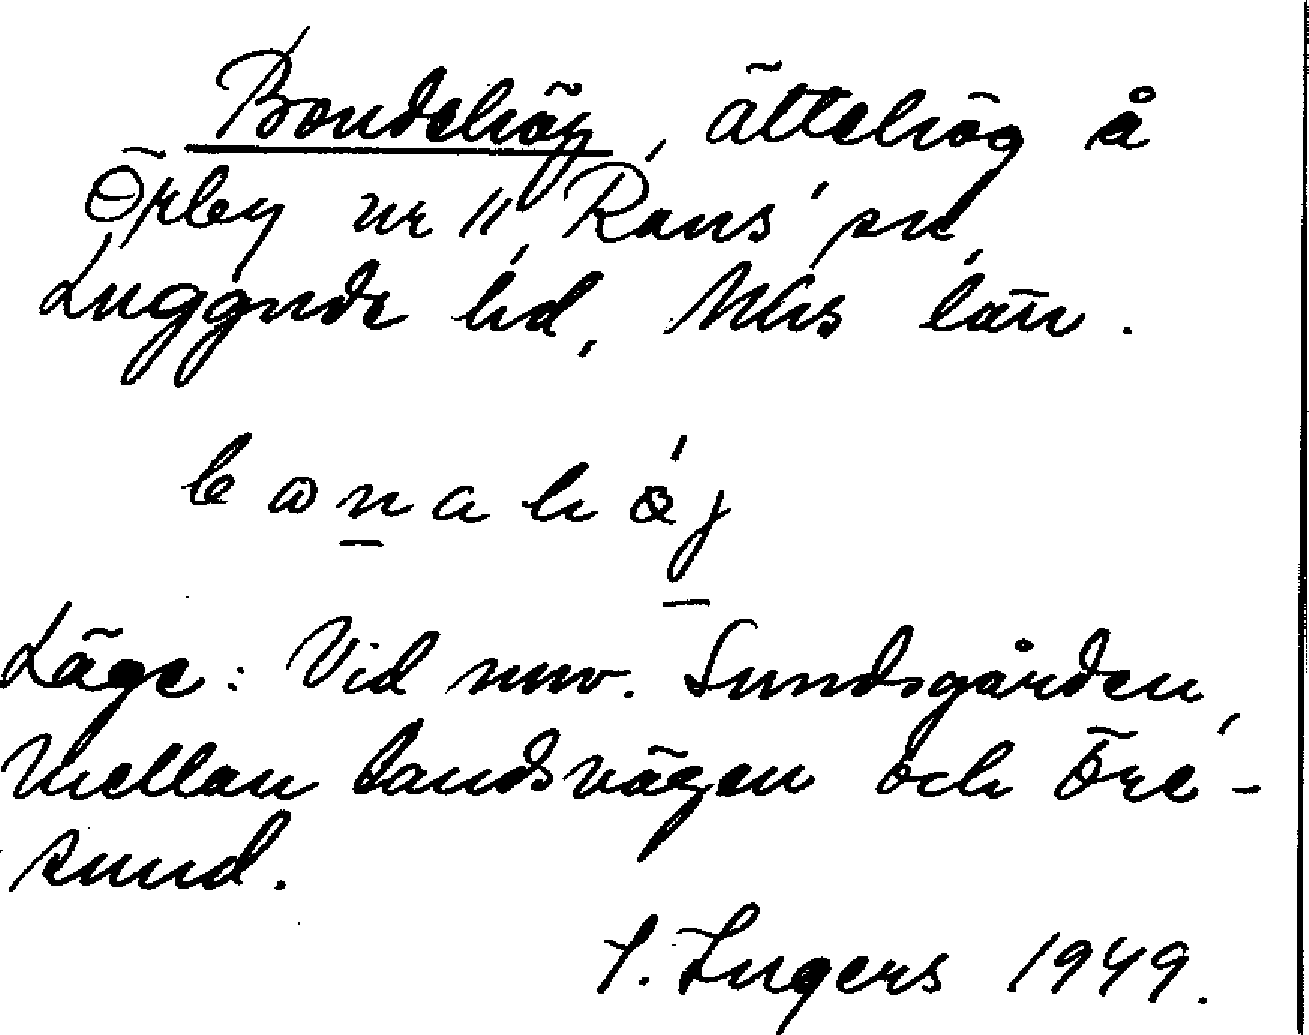 Bondehög, ättehög å
Örby nr 11, Raus sn,
Luggude hd, Mhs län.
bωnahǿj
Läge: Vid nuv. Sundsgården,
mellan landsvägen och Öre-
sund.
I. Ingers 1949.